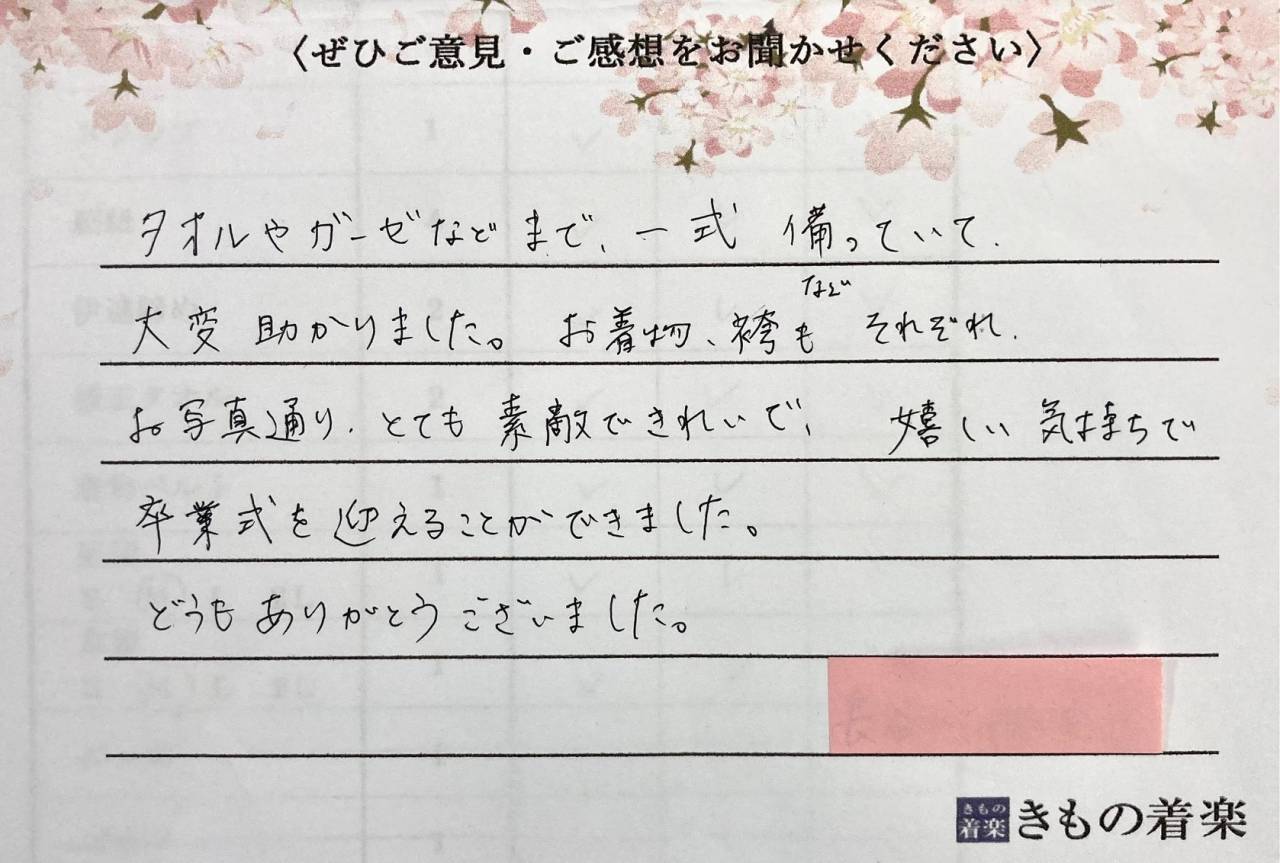 〈ぜひご意見・ご感想をお聞かせください〉
タオルやガーゼなどまで、一式 備っていて、
大変 助かりました。 お着物、袴も それぞれ、
など
お写真通り、とても 素敵できれいで、 嬉しい 気持ちで
卒業式を 迎えることができました。
どうも ありがとう ございました。
きもの
着楽
きもの着楽